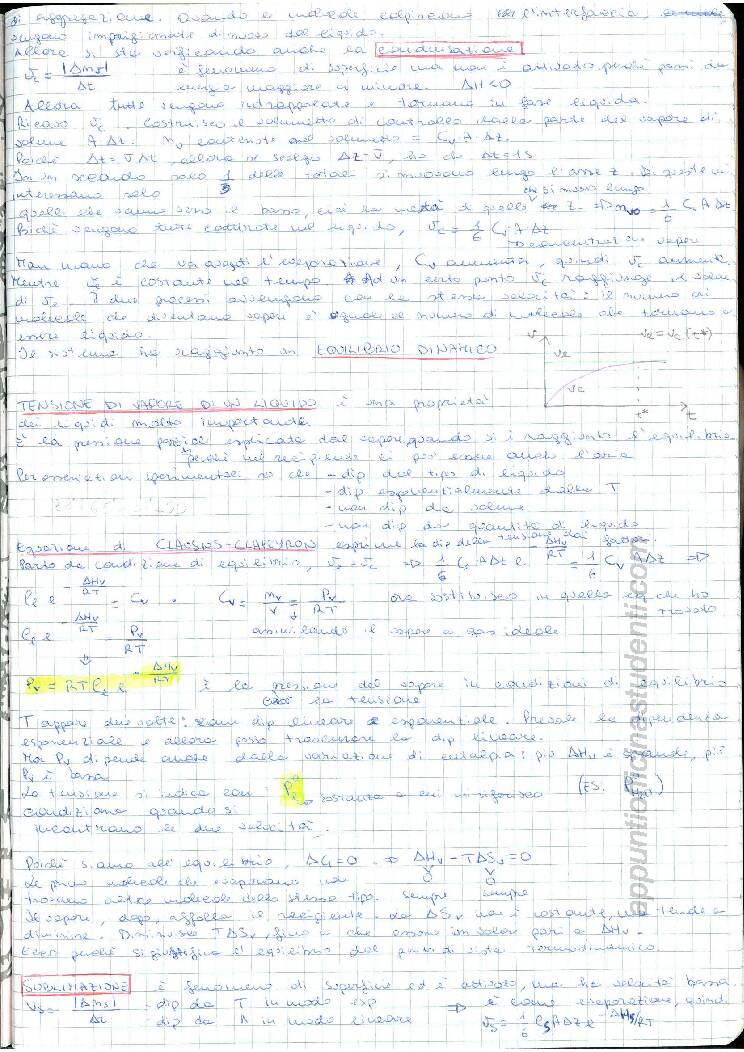 di aggregazione. Quando le molecole colpiscono l'interfaccia,
vengono imprigionate di nuovo dal liquido.
Allora si sta verificando anche la condensazione
v_c = |Δm_s| / Δt è fenomeno di superficie ma non è attivato perché passi da
energia maggiore a minore. ΔH<0
Allora tutte vengono intrappolate e tornano in fase liquida.
Ricavo v_c. Costruisco volumetto di controllo dalla parte del vapore di
volume A Δz. n_v contenute nel volumetto = C_v A Δz.
Poiché Δz = v̄ Δt, allora se scelgo Δz = v̄, ho che Δt = 1s
In un secondo solo 1/3 delle totali si muovono lungo l'asse z. Di queste mi
interessano solo
quelle che vanno verso il basso, cioè la metà di quelle che si muovono lungo z. ⇒ n_vo = 1/6 C_v A Δz
Poiché vengono tutte catturate nel liquido, v_c = 1/6 C_v A Δz
→ concentrazione vapore
Man mano che va avanti l'evaporazione, C_v aumenta, quindi v_c aumenta.
Mentre v_e è costante nel tempo. Ad un certo punto v_c raggiunge il valore
di v_e. I due processi avvengono con la stessa velocità: il numero di
molecole che diventano vapore è uguale al numero di molecole che tornano a
essere liquido.
Il sistema ha raggiunto un EQUILIBRIO DINAMICO
v v_e = v_c (t*)
v_e
v_c
t* t
TENSIONE DI VAPORE DI UN LIQUIDO è una proprietà
dei liquidi molto importante.
È la pressione parziale esplicata dal vapore quando si è raggiunto l'equilibrio
perché nel recipiente ci può essere anche l'aria
Per osservazioni sperimentali so che - dip dal tipo di liquido
- dip esponenzialmente dalla T
- non dip da volume
- non dip da quantità di liquido
Equazione di CLAUSIUS-CLAPEYRON esprime la dip della tensione dai fattori.
Parto da condizione di equilibrio, v_e = v_c ⇒ 1/6 C_l A Δz e^(-ΔH_v/RT) = 1/6 C_v A Δz ⇒
C_l e^(-ΔH_v/RT) = C_v . C_v = n_v/V = P_v/RT ora sostituisco in quella eq che ho
trovato
C_l e^(-ΔH_v/RT) = P_v/RT assimilando il vapore a gas ideale
⇓
P_v = RT C_l e^(-ΔH_v/RT) È la pressione del vapore in condizioni di equilibrio
cioè la tensione
T appare due volte: come dip lineare e esponenziale. Prevale la dipendenza
esponenziale e allora posso trascurare la dip lineare.
Ma P_v dipende anche dalla variazione di entalpia: più ΔH_v è grande, più
P_v è bassa.
La tensione si indica con: P° → sostanza a cui mi riferisco (ES.
condizione quando si
incontrano le due velocità.
Poiché siamo all'equilibrio, ΔG=0 ⇒ ΔH_v - TΔS_v = 0
Le prime molecole che evaporano non
trovano altre molecole dello stesso tipo. sempre sempre
Il vapore, dopo, affolla il recipiente. La ΔS_v non è costante, ma tende a
diminuire. Diminuisce TΔS_v, fino a che assume un valore pari a ΔH_v.
Ecco perché si giustifica l'equilibrio dal punto di vista termodinamico.
SUBLIMAZIONE è fenomeno di superficie ed è attivato, ma ha velocità bassa.
v_s = |Δm_s| / Δt - dip da T in modo exp ⇒ è come evaporazione, quindi
- dip da A in modo lineare v_s = 1/6 C_s A Δz e^(-ΔH_s/RT)
appuntiofficinastudenti.com